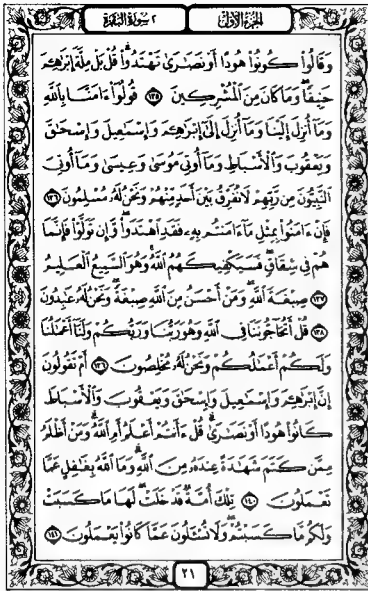 الجزء الأول
٢ سورة البقرة
وَقَالُوا۟ كُونُوا۟ هُودًا أَوْ نَصَـٰرَىٰ تَهْتَدُوا۟ ۗ قُلْ بَلْ مِلَّةَ إِبْرَٰهِـۧمَ
حَنِيفًا ۖ وَمَا كَانَ مِنَ ٱلْمُشْرِكِينَ ١٣٥ قُولُوٓا۟ ءَامَنَّا بِٱللَّهِ
وَمَآ أُنزِلَ إِلَيْنَا وَمَآ أُنزِلَ إِلَىٰٓ إِبْرَٰهِـۧمَ وَإِسْمَـٰعِيلَ وَإِسْحَـٰقَ
وَيَعْقُوبَ وَٱلْأَسْبَاطِ وَمَآ أُوتِىَ مُوسَىٰ وَعِيسَىٰ وَمَآ أُوتِىَ
ٱلنَّبِيُّونَ مِن رَّبِّهِمْ لَا نُفَرِّقُ بَيْنَ أَحَدٍ مِّنْهُمْ وَنَحْنُ لَهُۥ مُسْلِمُونَ ١٣٦
فَإِنْ ءَامَنُوا۟ بِمِثْلِ مَآ ءَامَنتُم بِهِۦ فَقَدِ ٱهْتَدَوا۟ ۖ وَّإِن تَوَلَّوْا۟ فَإِنَّمَا
هُمْ فِى شِقَاقٍ ۖ فَسَيَكْفِيكَهُمُ ٱللَّهُ ۚ وَهُوَ ٱلسَّمِيعُ ٱلْعَلِيمُ
١٣٧ صِبْغَةَ ٱللَّهِ ۖ وَمَنْ أَحْسَنُ مِنَ ٱللَّهِ صِبْغَةً ۖ وَنَحْنُ لَهُۥ عَـٰبِدُونَ
١٣٨ قُلْ أَتُحَآجُّونَنَا فِى ٱللَّهِ وَهُوَ رَبُّنَا وَرَبُّكُمْ وَلَنَآ أَعْمَـٰلُنَا
وَلَكُمْ أَعْمَـٰلُكُمْ وَنَحْنُ لَهُۥ مُخْلِصُونَ ١٣٩ أَمْ تَقُولُونَ
إِنَّ إِبْرَٰهِـۧمَ وَإِسْمَـٰعِيلَ وَإِسْحَـٰقَ وَيَعْقُوبَ وَٱلْأَسْبَاطَ
كَانُوا۟ هُودًا أَوْ نَصَـٰرَىٰ ۗ قُلْ ءَأَنتُمْ أَعْلَمُ أَمِ ٱللَّهُ ۗ وَمَنْ أَظْلَمُ
مِمَّن كَتَمَ شَهَـٰدَةً عِندَهُۥ مِنَ ٱللَّهِ ۗ وَمَا ٱللَّهُ بِغَـٰفِلٍ عَمَّا
تَعْمَلُونَ ١٤٠ تِلْكَ أُمَّةٌ قَدْ خَلَتْ ۖ لَهَا مَا كَسَبَتْ
وَلَكُم مَّا كَسَبْتُمْ ۖ وَلَا تُسْـَٔلُونَ عَمَّا كَانُوا۟ يَعْمَلُونَ ١٤١
٢١